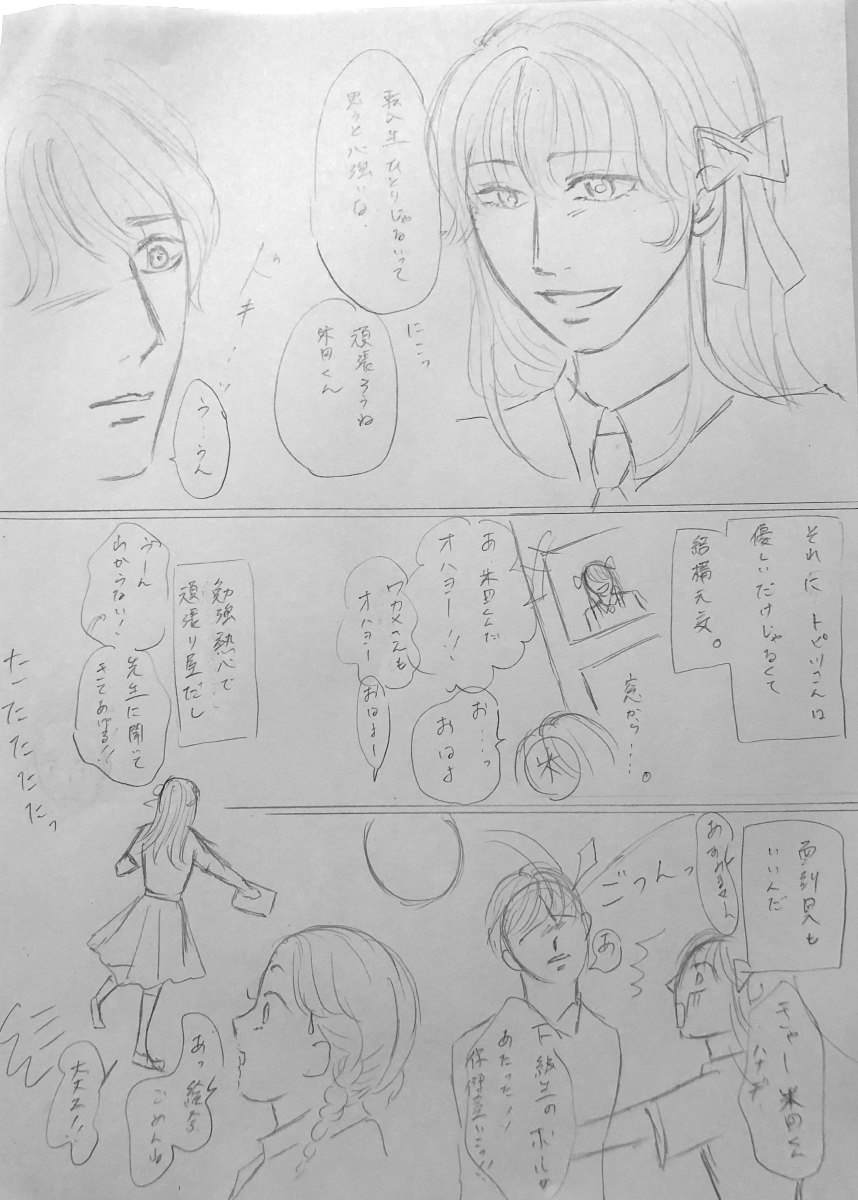 転入生ひとりじゃないって
思うと心強いな。
にこっ
頑張ろうね
米田くん
ドキ…ッ
う…うん
それに トピリさんは
優しいだけじゃなくて
結構元気。
窓から…。
米
あ、米田くんだ
オハヨー!!
ワカメさんも
オハヨー
お…っ
おはよ
おはよー
勉強熱心で
頑張り屋だし
うーん
わからない!
先生に聞いて
きてあげる!!
たたたたたっ
面倒見も
いいんだ
ごつんっ
あ
キャー 米田くん
ハナヂ
下級生のボールが
あたった!!
保健室にこっ!!
あっ絵名
ごめんね
大丈夫!!